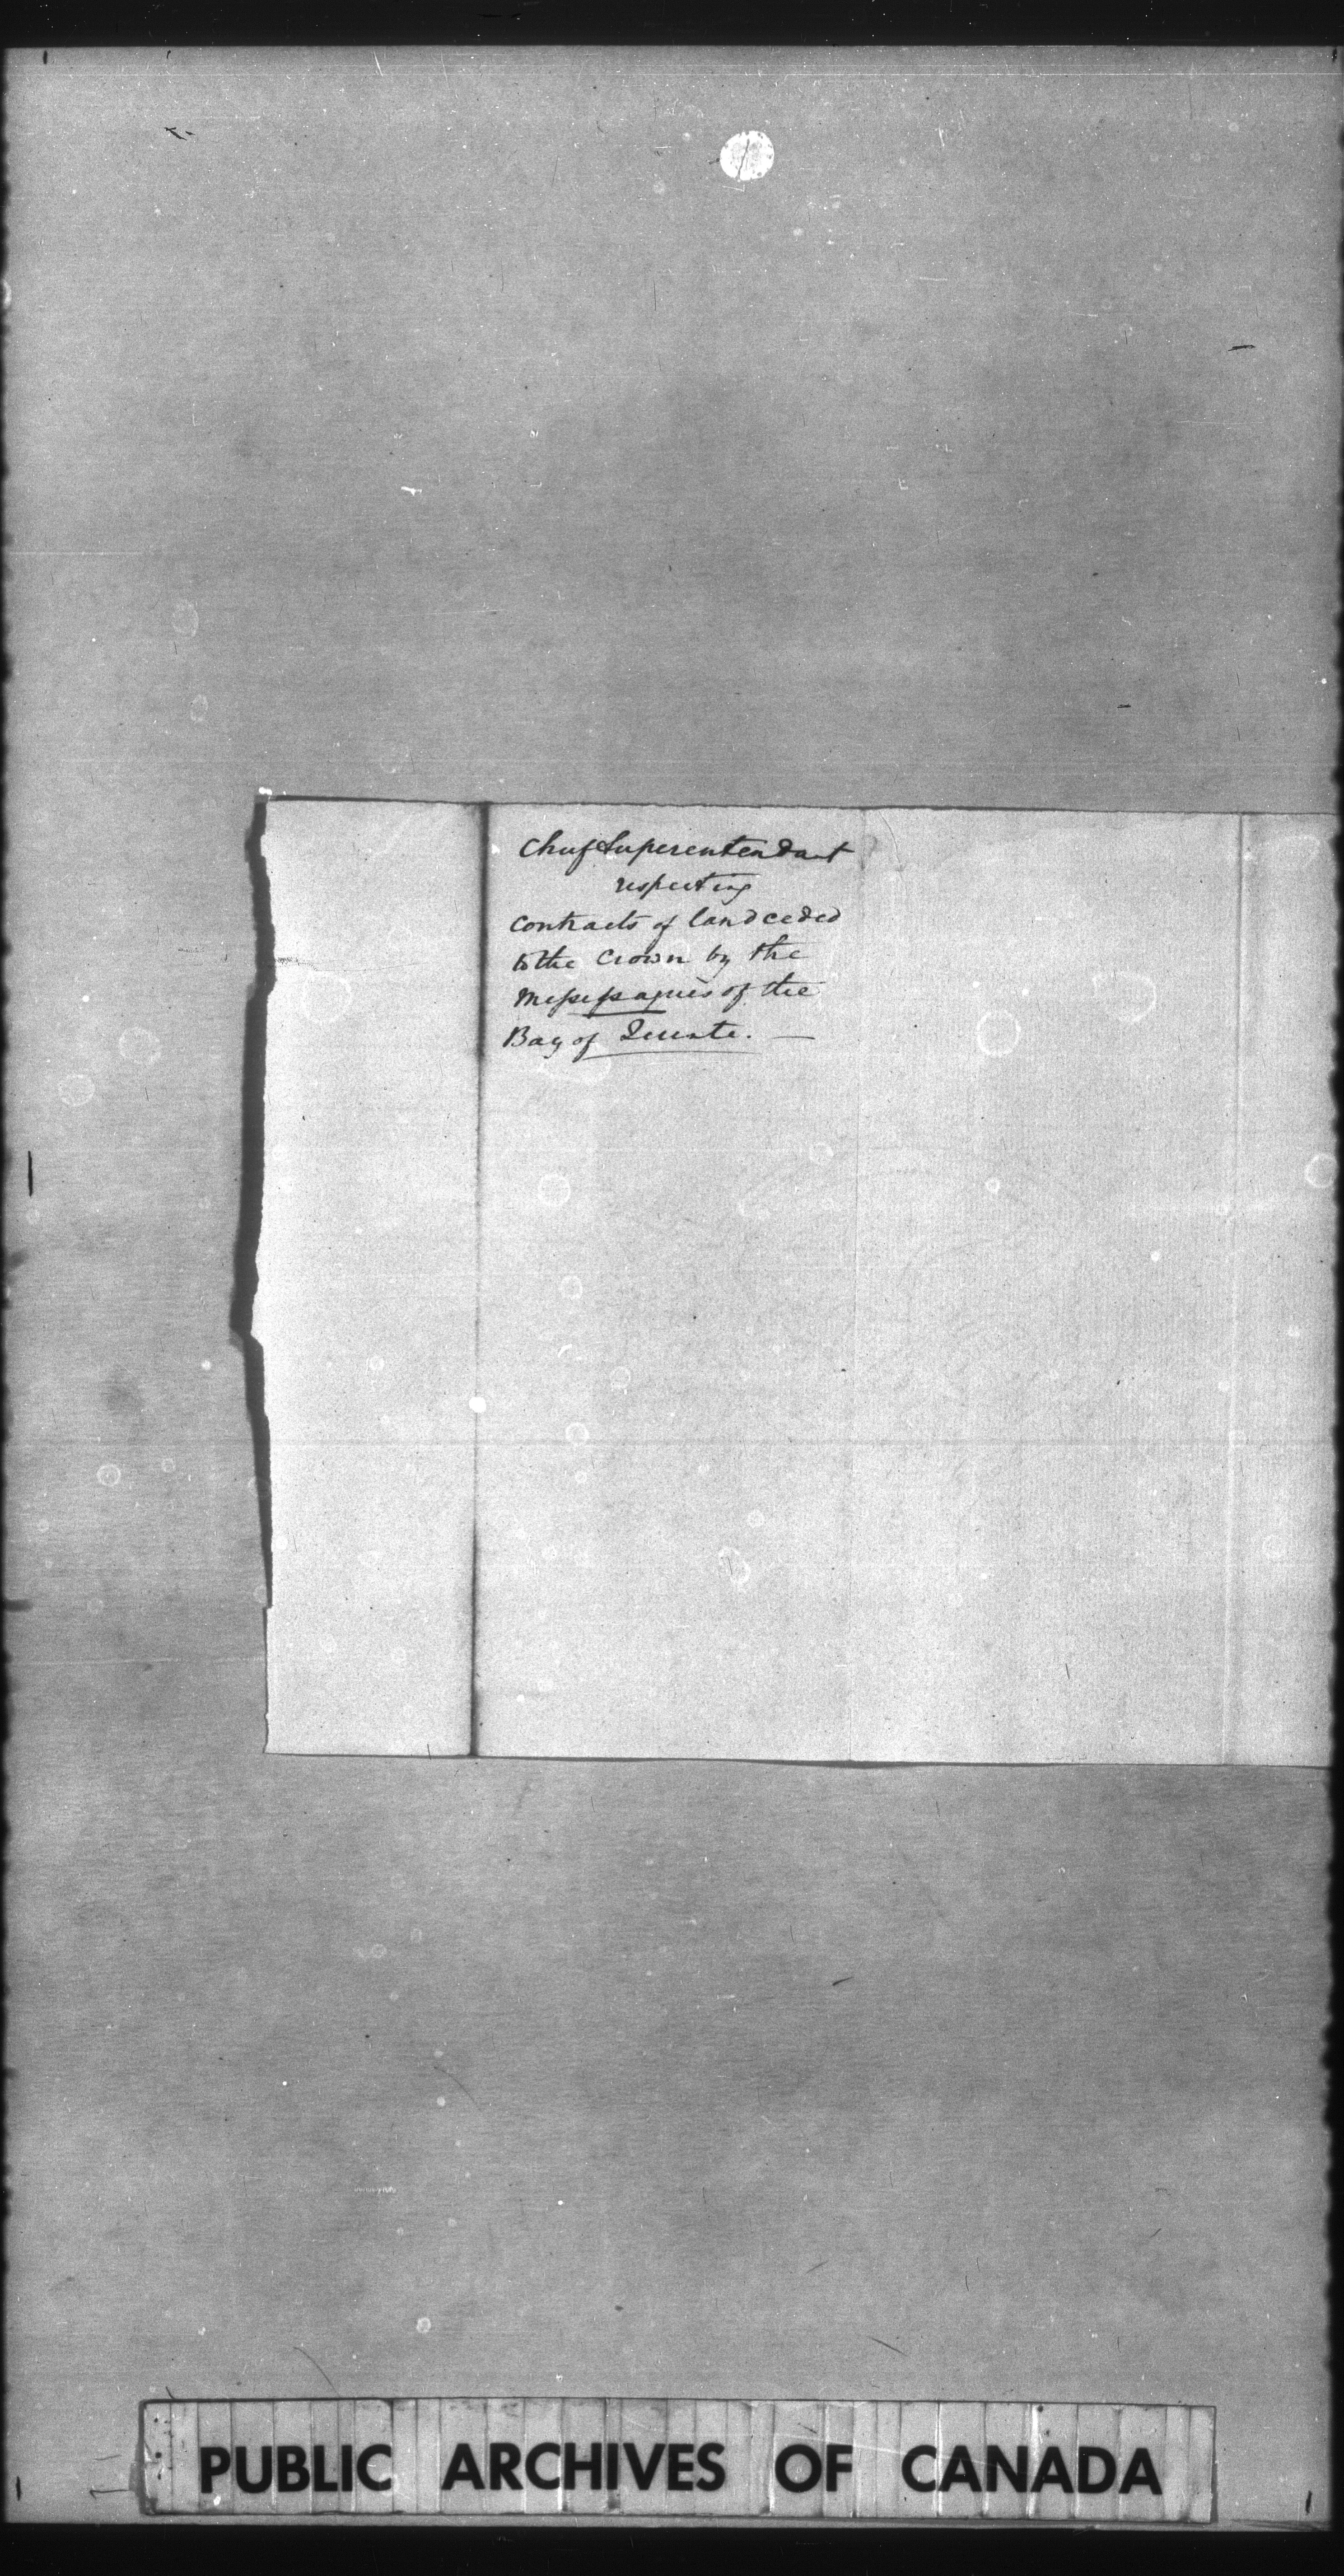 Chief Superentendant
respecting
contracts of land ceded
to the Crown by the
Messessaguis of the
Bay of Quinte. —
PUBLIC ARCHIVES OF CANADA